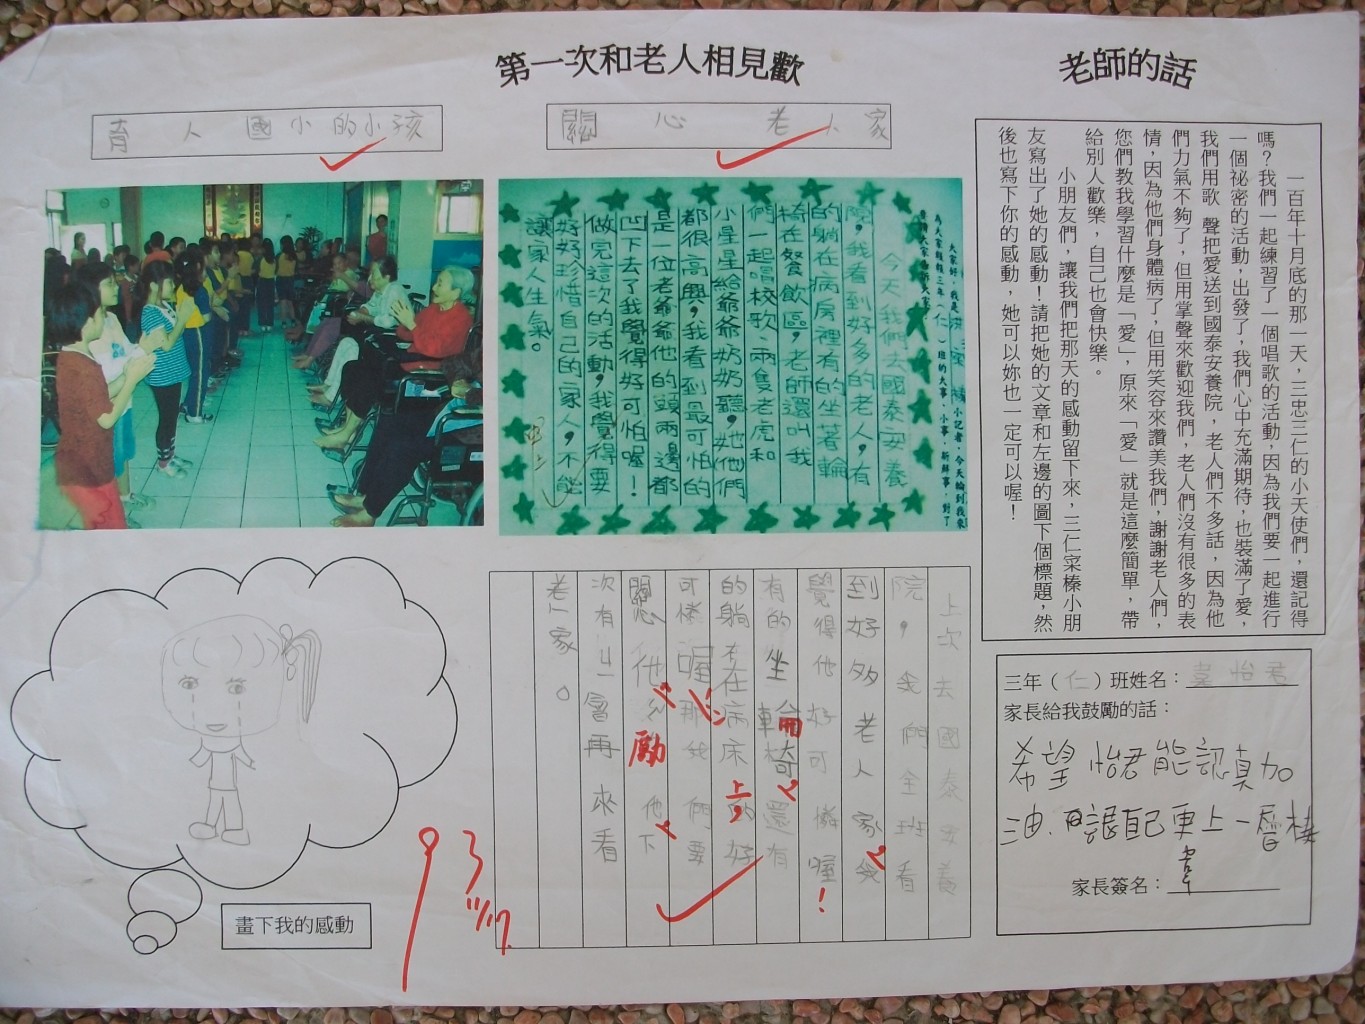 第一次和老人相見歡
老師的話
育人國小的小孩
關心老人家
一百年十月底的那一天，三忠三仁的小天使們，還記得
嗎？我們一起練習了一個唱歌的活動，因為我們要一起進行
一個祕密的活動，出發了，我們心中充滿期待，也裝滿了愛，
我們用歌 聲把愛送到國泰安養院，老人們不多話，因為他
們力氣不夠了，但用掌聲來歡迎我們，老人們沒有很多的表
情，因為他們身體病了，但用笑容來讚美我們，謝謝老人們，
您們教我學習什麼是「愛」，原來「愛」就是這麼簡單，帶
給別人歡樂，自己也會快樂。
小朋友們，讓我們把那天的感動留下來，三仁采榛小朋
友寫出了她的感動！請把她的文章和左邊的圖下個標題，然
後也寫下你的感動，她可以妳也一定可以喔！
大家好，我是洪 小記者，今天輪到我來
為大家報報三年（仁）班的大事、小事、新鮮事，對了
今天我們去國泰安養
院，我看到好多的老人，有
的躺在病房裡有的坐著輪
椅在餐飲區，老師還叫我
們一起唱校歌、兩隻老虎和
小星星給爺爺奶奶聽，她們
都很高興，我看到最可怕的
是一位老爺爺他的頭兩邊都
凹下去了我覺得好可怕喔！
做完這次的活動，我覺得要
好好珍惜自己的家人，不能
讓家人生氣。
上次去國泰安養
院，我們全班看
到好多老人家我
覺得他好可憐喔！
有的坐輪椅還有
的躺在病床上，的好
可憐喔那我們要
關心他 勵他下
次有 會再來看
老人家。
畫下我的感動
93
11/17
三年（仁）班姓名：葉怡君
家長給我鼓勵的話：
希望怡君能認真加
油.讓自己更上一層樓
家長簽名：